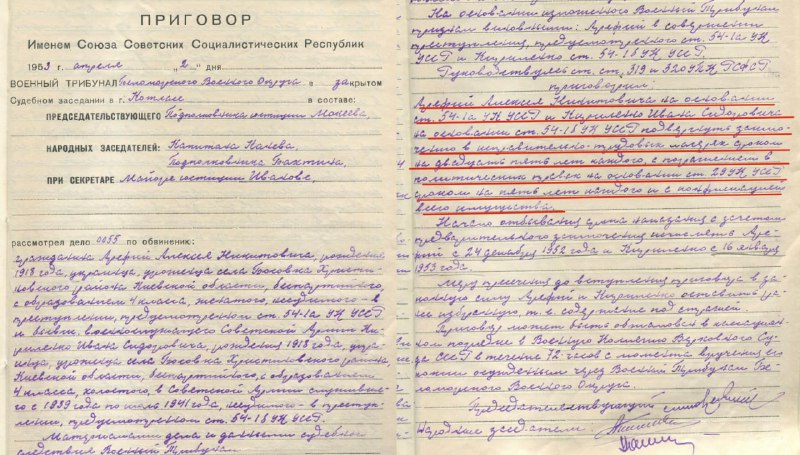 ПРИГОВОР
Именем Союза Советских Социалистических Республик
1953 г. апреля „2" дня.
ВОЕННЫЙ ТРИБУНАЛ Беломорского Военного Округа в закрытом
Судебном заседании в г. Котласе в составе:
ПРЕДСЕДАТЕЛЬСТВУЮЩЕГО Подполковника юстиции Мокеева,
НАРОДНЫХ ЗАСЕДАТЕЛЕЙ: Капитана
Подполковника
ПРИ СЕКРЕТАРЕ Майоре юстиции Иванове,
рассмотрел дело 0055 по обвинен:
гражданина Арефий Алексея Никитовича, рождения
1918 года, украинца, уроженца села Христи-
новского района Киевской области, беспартийного,
с образованием 4 класса, женатого, несудимого - в
преступлении, предусмотренном ст. 54-1а УК УССР
и бывш. военнослужащего Советской Армии Ки-
риленко Ивана Сидоровича, рождения 1918 года, укра-
инца, уроженца села Христиновского района
Киевской области, беспартийного, с образованием
4 класса, холостого, в Советской Армии служивше-
го с 1939 года по июль 1941 года, несудимого - в преступ-
лении, предусмотренном ст. 54-1б УК УССР.
Материалами дела и данными судебного
следствия Военный Трибунал
На основании изложенного Военный Трибунал
признал виновными: Арефий в совершении
преступления, предусмотренного ст. 54-1а УК
УССР и Кириленко ст. 54-1б УК УССР.
Руководствуясь ст. ст. 319 и 320 УПК РСФСР
приговорил:
Арефий Алексея Никитовича на основании
ст. 54-1а УК УССР и Кириленко Ивана Сидоровича
на основании ст. 54-1б УК УССР подвергнуть заклю-
чению в исправительно-трудовых лагерях сроком
на двадцать пять лет каждого, с поражением в
политических правах на основании ст. 29 УК УССР
сроком на пять лет каждого и с конфискацией
всего имущества.
Начало отбывания срока наказания с зачетом
предварительного заключения исчислять Аре-
фий с 24 декабря 1952 года и Кириленко с 16 января
1953 года.
Меру пресечения до вступления приговора в за-
конную силу Арефий и Кириленко оставить ра-
нее избранную, т. е. содержание под стражей.
Приговор может быть обжалован в кассацион-
ном порядке в Военную Коллегию Верховного Су-
да СССР в течение 72 часов с момента вручения его
копии осужденным через Военный Трибунал Бе-
ломорского Военного Округа.
Председательствующий
Народные заседатели: